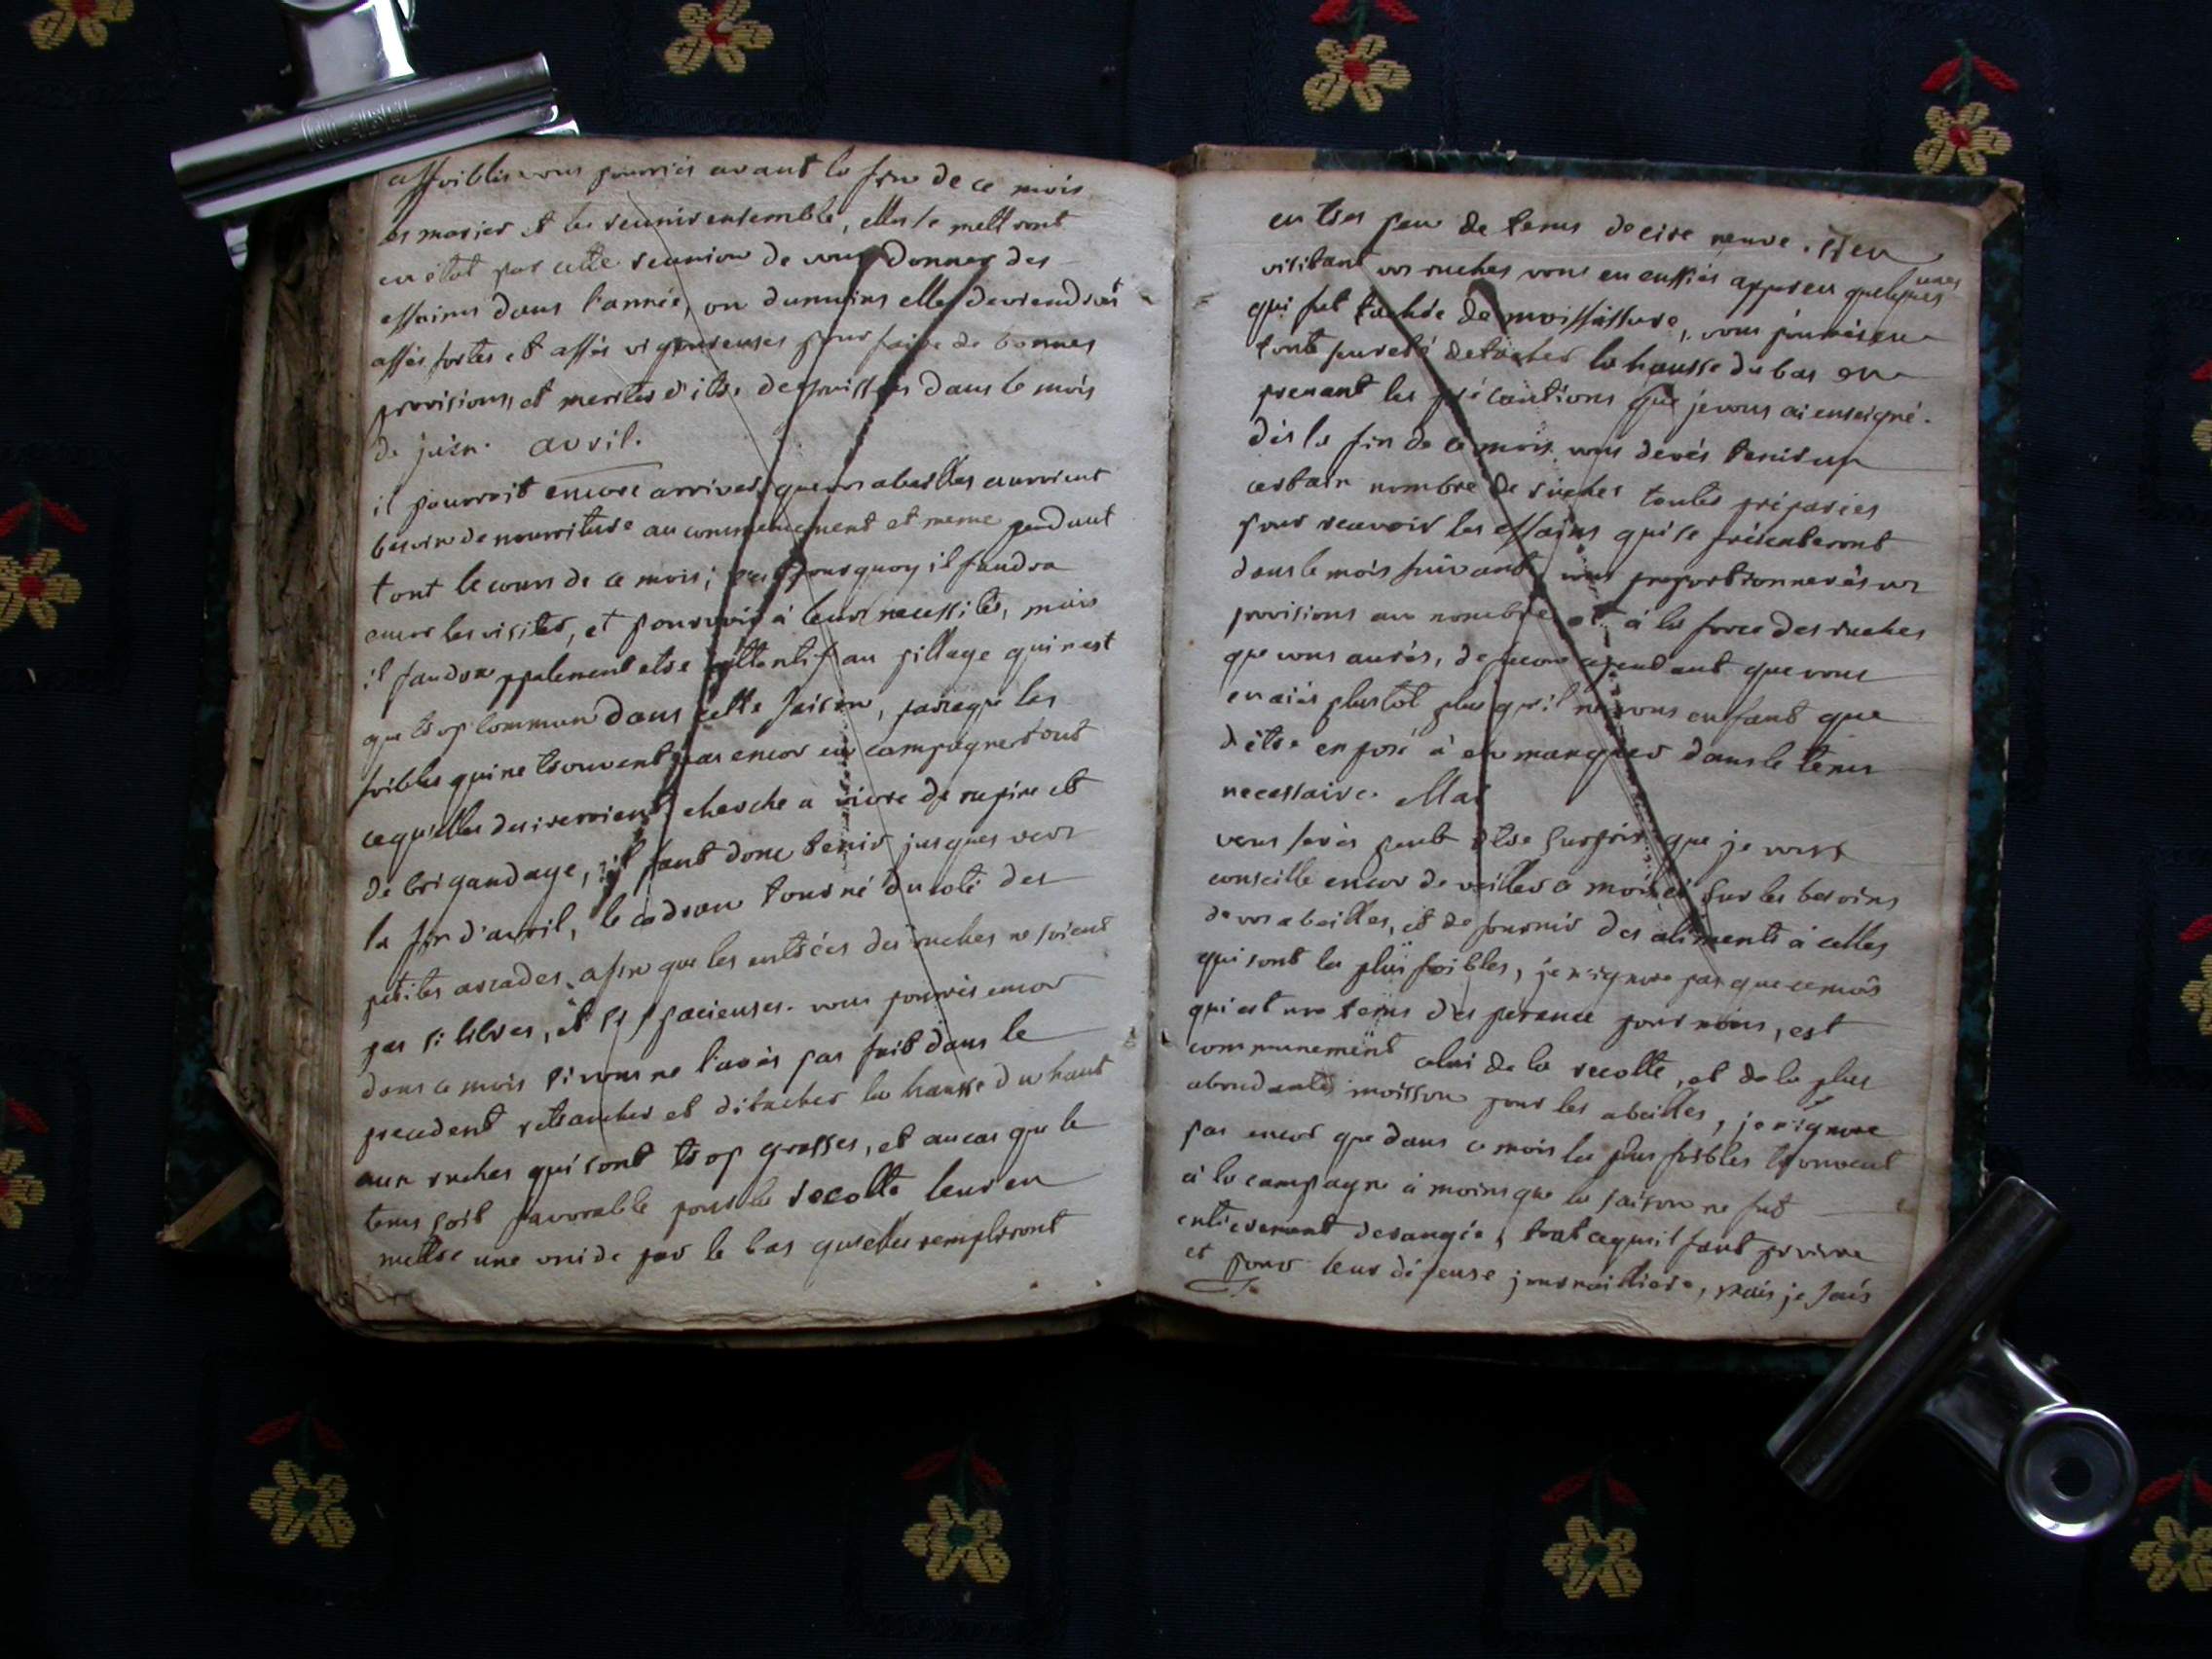 affoiblis vous pourriés avant la fin de ce mois
les marier et les reunir ensemble, elles se mettront
en état par cette reunion de vous donner des
essaims dans l'année, ou dumoins elles deviendront
assés fortes et assés vigoureuses pour faire de bonnes
provisions, et meriter d'etre depouillées dans le mois
de juin. avril.
il pourroit encore arriver que vos abeilles auroient
besoin de nourriture au commencement et meme pendant
tout le cours de ce mois; c'est pourquoy il faudra
encor les visiter, et pourvoir à leurs necessités, mais
il faudra egalement etre attentif au pillage qui n'est
que trop commun dans cette saison, parceque les
foibles qui ne trouvent pas encor en campagne tout
ce qu'elles desireroient cherche a vivre de rapine et
de brigandage, il faut donc tenir jusques vers
la fin d'avril, le cadran tourné du coté des
petites arcades, afin que les entrées des ruches ne soient
pas si libres, et si spacieuses. vous pourrés encor
dans ce mois si vous ne l'avés pas fait dans le
precedent retrancher et détacher la hausse du haut
aux ruches qui sont trop grasses, et au cas que le
tems soit favorable pour la recolte leur en
mettre une vuide par le bas qu'elles rempliront
en tres peu de tems de cire neuve. si en
visitant vos ruches vous en eussiés apperçu quelques unes
qui fut tachée de moisissure, vous pourrés en
toute sureté detacher la hausse du bas en
prenant les précautions que je vous ai enseigné.
dès la fin de ce mois vous devés tenir un
certain nombre de ruches toutes préparées
pour recevoir les essaims qui se présenteront
dans le mois suivant, vous proportionnerés vos
provisions au nombre et à la force des ruches
que vous aurés, de façon cependant que vous
en aiés plustot plus qu'il ne vous en faut que
d'être exposé à en manquer dans le tems
necessaire. Mai
vous serés peut etre surpris que je vous
conseille encor de veiller ce mois ci sur les besoins
de vos abeilles, et de fournir des aliments à celles
qui sont les plus foibles, je n'ignore pas que ce mois
qui est un tems d'esperance pour nous, est
communement celui de la recolte, et de la plus
abondante moisson pour les abeilles, je n'ignore
pas encor que dans ce mois les plus foibles trouvent
à la campagne à moins que la saison ne fut
entierement derangée, tout ce qu'il faut pr vivre
et pour leur dépense journailliere, mais je sais